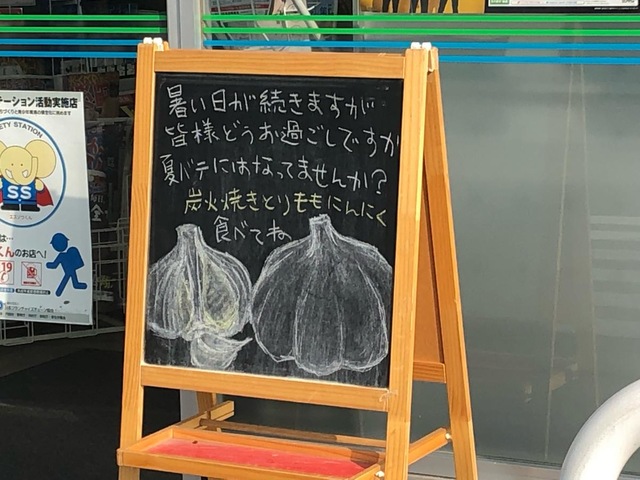 暑い日が続きますが
皆様どうお過ごしですか
夏バテにはなってませんか?
炭火焼きとりももにんにく
食べてね
テーション活動実施店
ETY STATION
SS
エスゾウくん
は…
くんのお店へ!
19